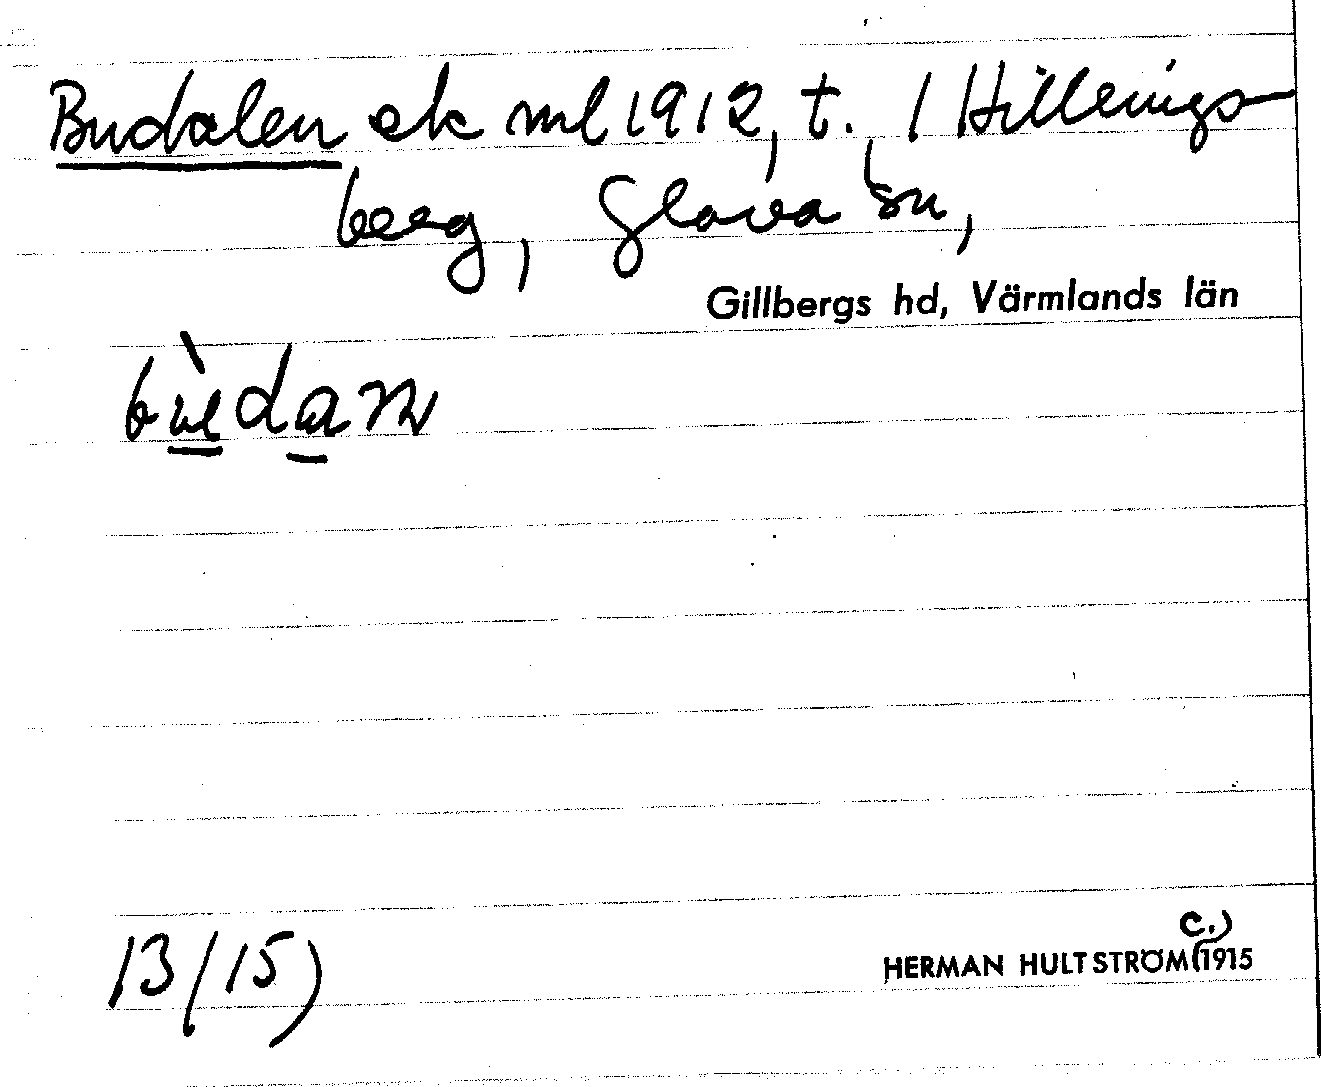 Budalen ek ml 1912, t. 1 Hillerings-
berg, Glava sn,
Gillbergs hd, Värmlands län
13/15)
c.)
HERMAN HULTSTRÖM (1915